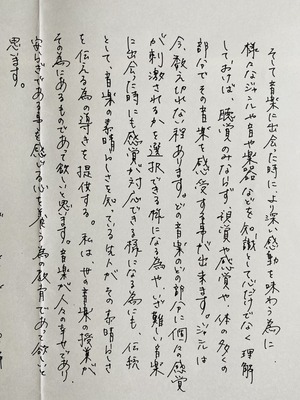 そして音楽に出会った時に、より深い感動を味わう為に
様々なジャンルや音や楽器などを知識として心だけでなく理解
しておけば、聴覚のみならず視覚や感覚や、体の多くの
部分でその音楽を感受する事が出来ます。ジャンルは
今、数え切れない程あります。どの音楽のどの部分に個々の感覚
が刺激されるかを選択できる様になる為や、いざ難しい音楽
に出会った時にも感覚が対応できる様になる為にも、伝統
として、音楽の素晴らしさを知っている先人がその素晴らしさ
を伝える為の導きを提供する。私は、世の音楽の授業が
その為にあるものであって欲しいと思います。音楽が人々の幸せであり
安らぎである事を感じる心を養う為の教育であって欲しいと
思います。